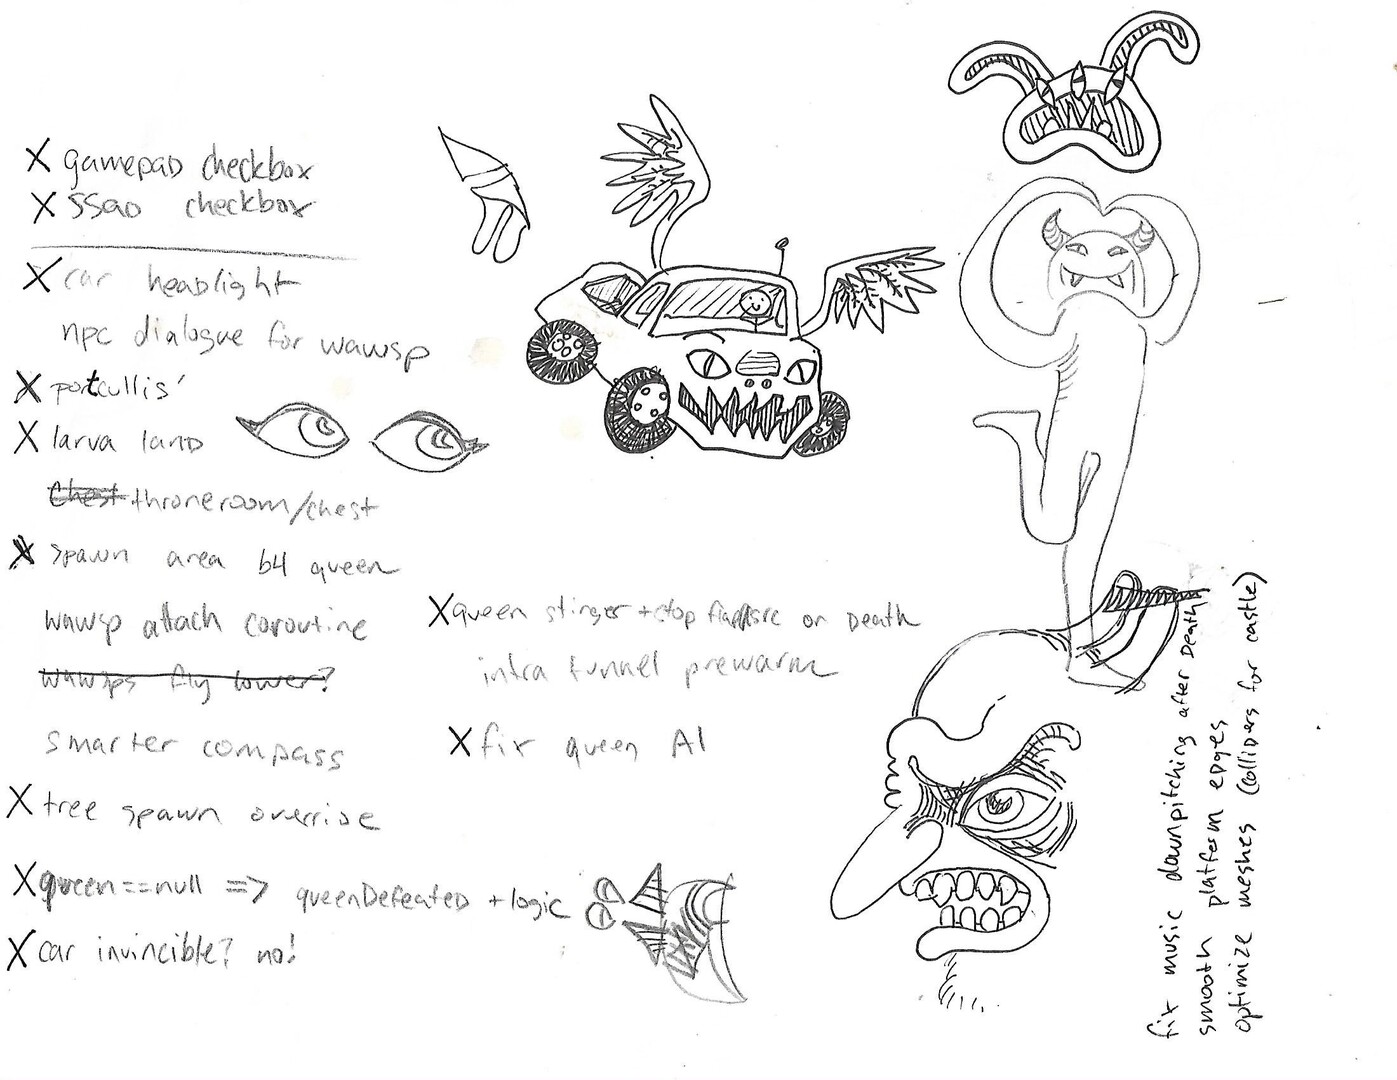 X gamepad checkbox
X SSAO checkbox
X car headlight
npc dialogue for wawsp
X portcullis
X larva land
chest throneroom/chest
X spawn area b4 queen
wawsp attach coroutine
wawsps fly lower?
smarter compass
X tree spawn override
X queen==null => queenDefeated + logic
X car invincible? no!
X queen stinger + stop on Death
intra tunnel prewarm
X fix queen AI
fix music downpitching after Death
smooth platform edges
optimize meshes (colliders for castle)